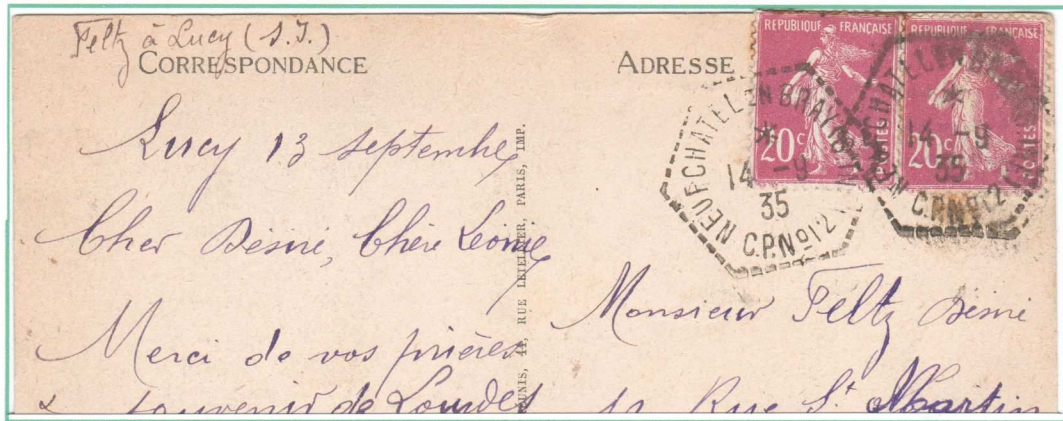 Feltz à Lucy (S.I.)
CORRESPONDANCE
Lucy 13 septembre
Cher Désiré, Chère Léonie
Merci de vos prières
& souvenir de Lourdes
RUE LETELLIER, PARIS, IMP.
ADRESSE
REPUBLIQUE FRANÇAISE
20c
POSTES
REPUBLIQUE FRANÇAISE
20c
POSTES
NEUFCHATEL EN BRAY
14 -9
35
C.P.N°12
NEUFCHATEL EN BRAY
14 -9
35
C.P.N°12
Monsieur Feltz Désiré
Rue St Martin